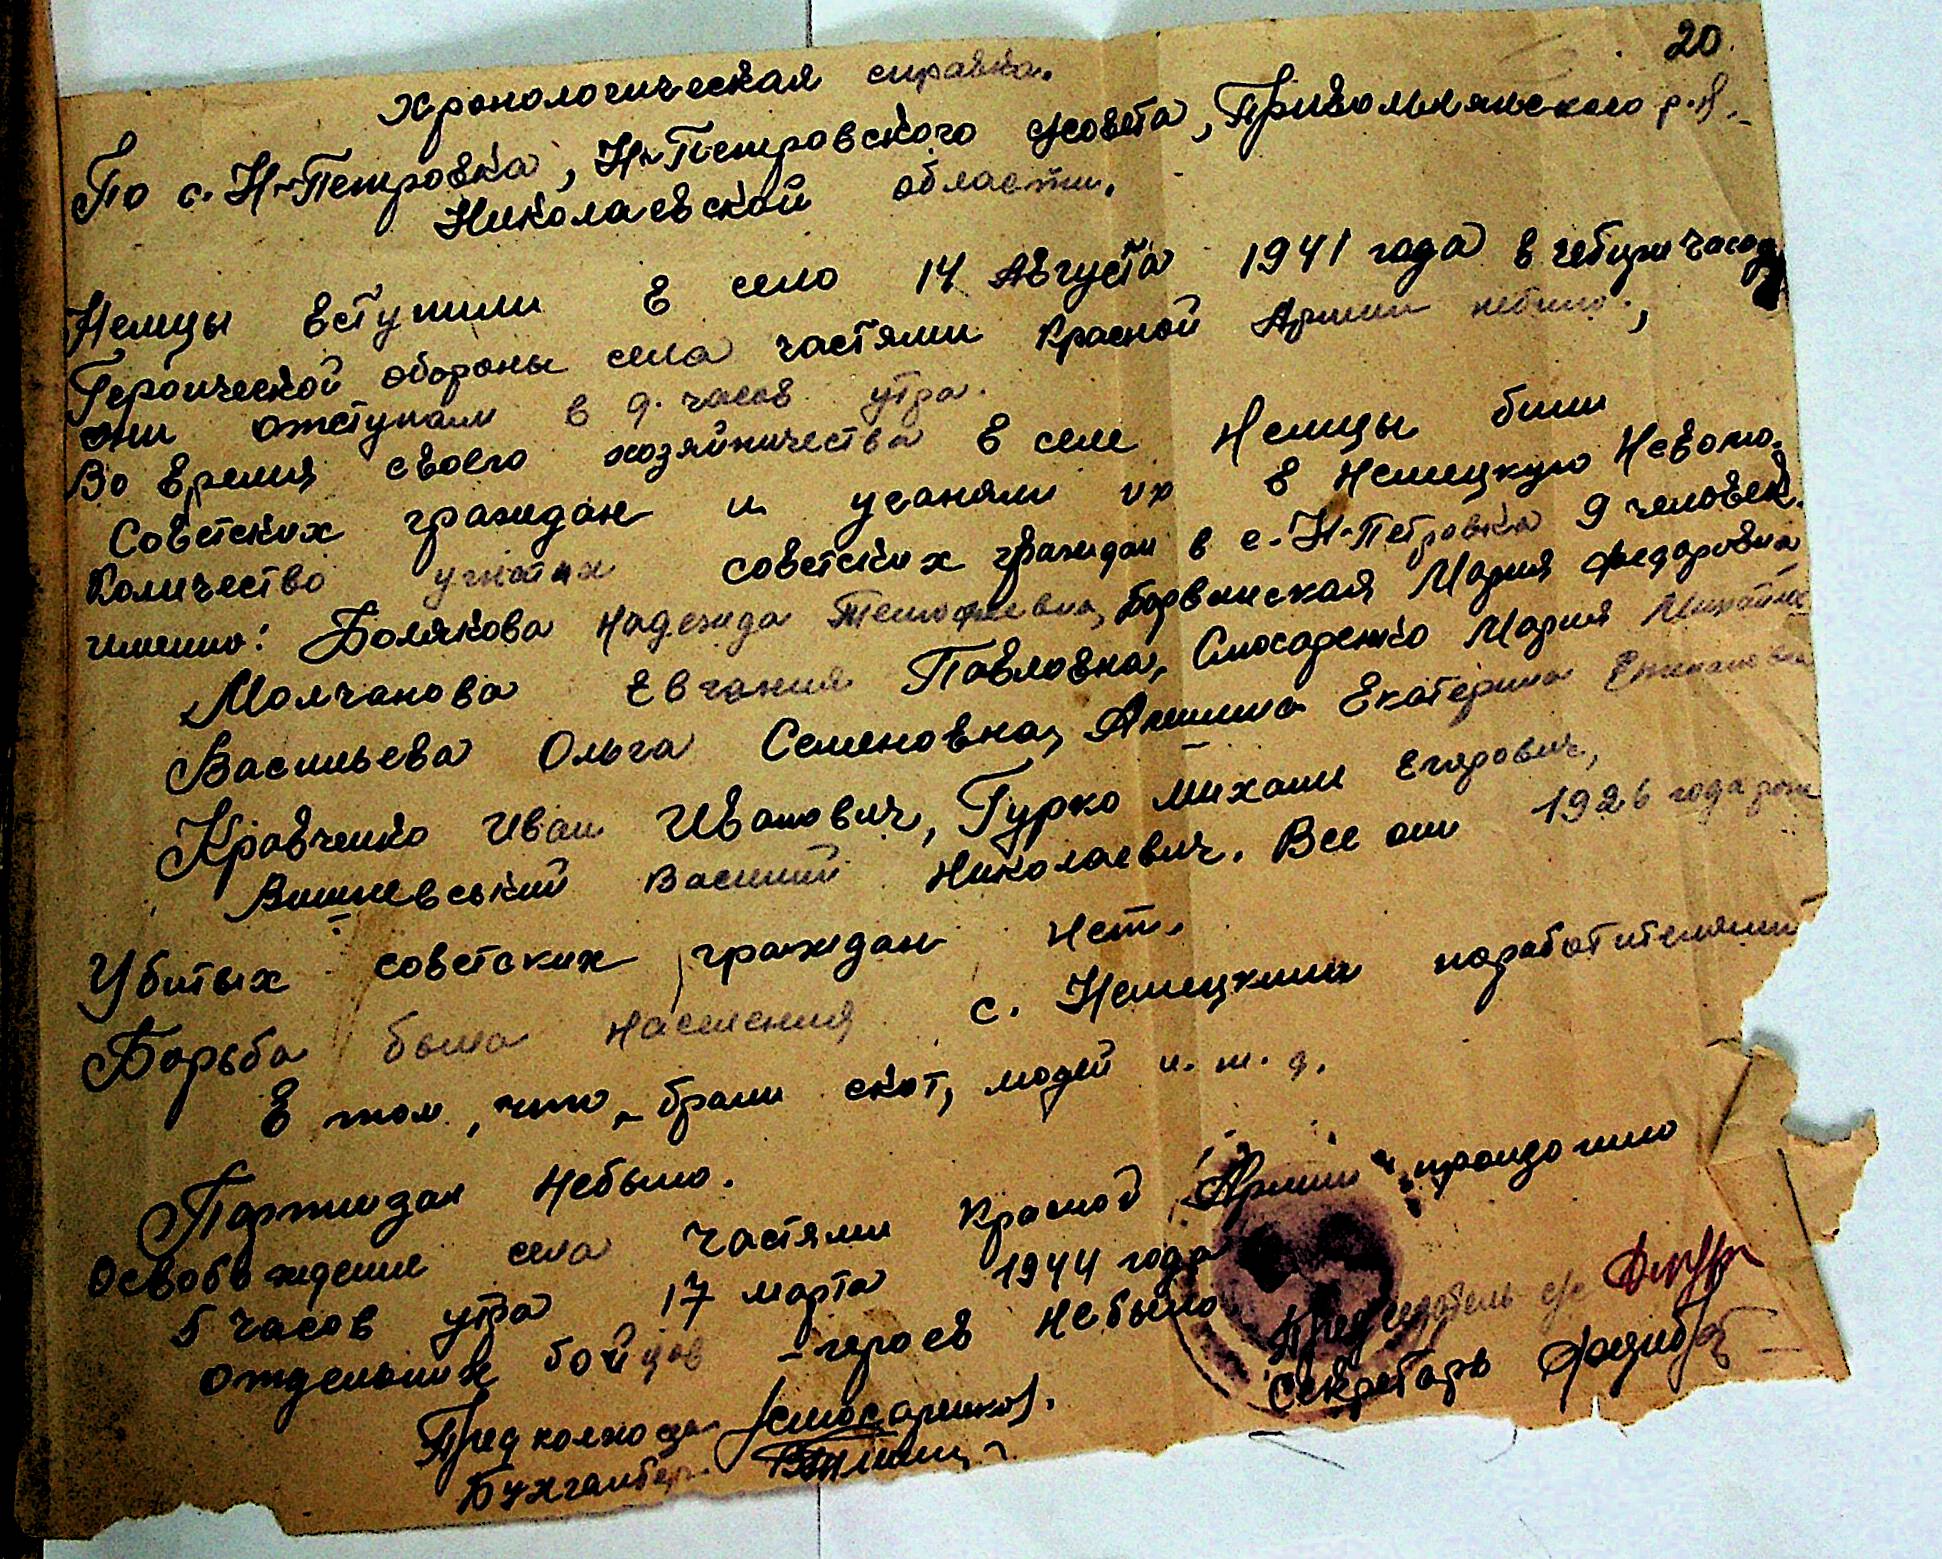 20.
Хронологическая справка.
По с. Н-Петровка, Н-Петровского с/совета, Привольнянского р-н.
Николаевской области.
Немцы вступили в село 14 Августа 1941 года в чебири часа
Героической обороны села частями Красной Армии небыло.,
они отступали в 9. часов утра.
Во время своего хозяйничества в селе Немцы били
Советских граждан и угоняли их в Немецкую Неволю.
Количество угнатых советских граждан в с. Н-Петровка 9 человек.
именно: Болякова Надежда Темофеевна, Борвинская Мария Федоровна
Молчанова Евгания Павловна, Слюсаренко Мария
Васильева Ольга Семеновна, Екатерина
Кравченко Иван Иванович, Гурко Михаил Егорович,
Вишневський Василий Николаевич. Все они 1926 года рож
Убитых советских граждан нет.
Борьба была населения с. Немецкими поработителями
в том, что, брали скот, людей и. т. д.
Партизан небыло.
Освобождение села частями Красной Армии
5 часов утра 17 марта 1944 года
отждельних бойцов - героев небыло.
Председатель с/с
Секретарь
Пред колхоза (Слюсаренко).
Бухгалтер